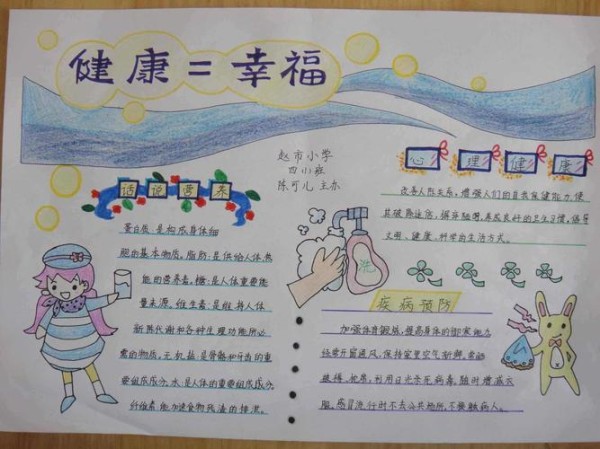 健康=幸福
赵市小学
四(1)班
陈可儿 主办
话说营养
蛋白质是构成身体细
胞的基本物质,脂肪:是供给人体热
能的营养素,糖:是人体重要能
量来源,维生素:是维持人体
新陈代谢和各种生理功能所必
需的物质,无机盐:是骨骼和牙齿的重
要组成成分,水:是人体的重要组成成分
纤维素:能加速食物残渣的排泄。
心理健康
改善人际关系,增强人们的自我保健能力,使
其破除迷信,摒弃陋习,养成良好的卫生习惯,倡导
文明、健康、科学的生活方式。
洗
疾病预防
加强体育锻炼,提高身体的御寒能力
经常开窗通风,保持室内空气新鲜,常晒
被褥、枕席,利用日光杀死病毒,随时增减衣
服,感冒流行时不去公共场所,不接触病人。